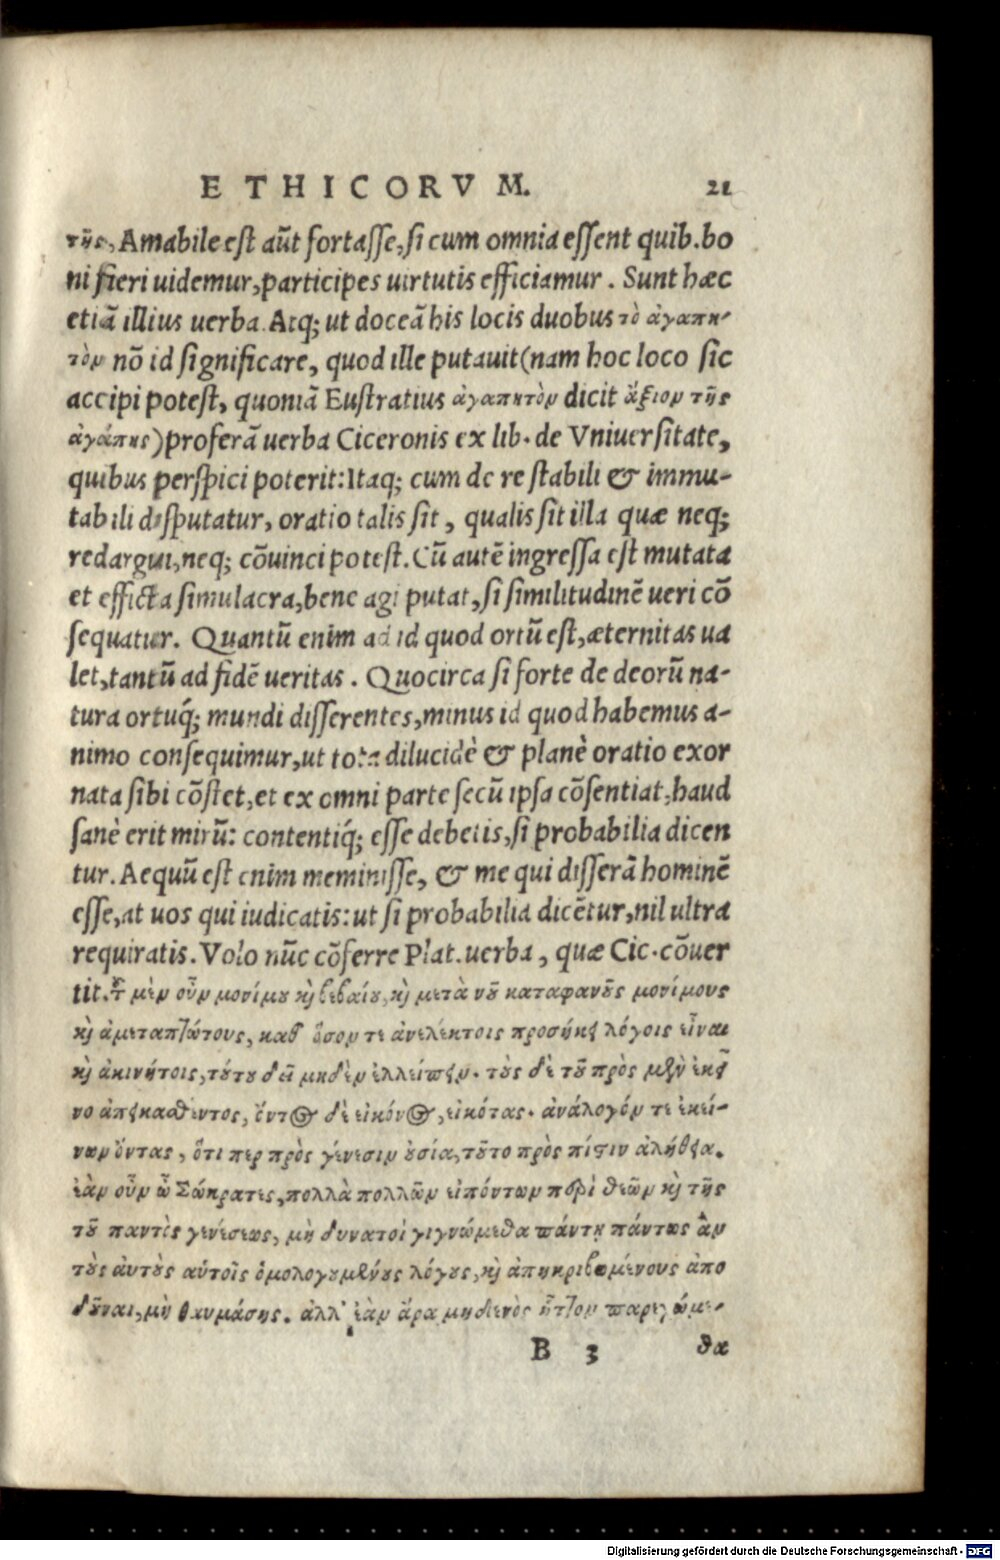 ETHICORVM. 21
τῆς, Amabile est aũt fortasse, si cum omnia essent quib. bo
ni fieri uidemur, participes uirtutis efficiamur. Sunt hæc
etiã illius uerba. Atq; ut doceã his locis duobus τὸ ἀγαπη-
τὸν nõ id significare, quod ille putauit (nam hoc loco sic
accipi potest, quoniã Eustratius ἀγαπητὸν dicit ἄξιον τῆς
ἀγάπης) proferã uerba Ciceronis ex lib. de Vniuersitate,
quibus perspici poterit: Itaq; cum de re stabili & immu-
tabili disputatur, oratio talis sit, qualis sit illa quæ neq;
redargui, neq; cõuinci potest. Cũ autẽ ingressa est mutata
et efficta simulacra, bene agi putat, si similitudinẽ ueri cõ
sequatur. Quantũ enim ad id quod ortũ est, æternitas ua
let, tantũ ad fidẽ ueritas. Quocirca si forte de deorũ na-
tura ortuq́; mundi disserentes, minus id quod habemus a-
nimo consequimur, ut tota dilucidè & planè oratio exor
nata sibi cõstet, et ex omni parte secũ ipsa cõsentiat, haud
sanè erit mirũ: contentiq́; esse debetis, si probabilia dicen
tur. Aequũ est enim meminisse, & me qui disserã hominẽ
esse, at uos qui iudicatis: ut si probabilia dicẽtur, nil ultra
requiratis. Volo nũc cõferre Plat. uerba, quæ Cic. cõuer
tit. τ͂ μὲν οὖν μονίμου καὶ βεβαίου, καὶ μετὰ νοῦ καταφανοῦς μονίμους
καὶ ἀμεταπτώτους, καθ' ὅσον τε ἀνελέκτοις προσήκει λόγοις εἶναι
καὶ ἀκινήτοις, τούτου δεῖ μηδὲν ἐλλείπειν. τοὺς δὲ τοῦ πρὸς μὲν ἐκεῖ
νο ἀπεικασθέντος, ὄντος δὲ εἰκόνος, εἰκότας. ἀνάλογόν τε ἐκεί-
νων ὄντας, ὅτι περ πρὸς γένεσιν οὐσία, τοῦτο πρὸς πίστιν ἀλήθεια.
ἐὰν οὖν ὦ Σώκρατες, πολλὰ πολλῶν εἰπόντων περὶ θεῶν καὶ τῆς
τοῦ παντὸς γενέσεως, μὴ δυνατοὶ γιγνώμεθα πάντη πάντως ἂν
τοὺς αὐτοὺς αὑτοῖς ὁμολογουμένους λόγους, καὶ ἀπηκριβωμένους ἀπο
δοῦναι, μὴ θαυμάσῃς. ἀλλ' ἐὰν ἄρα μηδενὸς ἧττον παρεχώμε-
B 3 θα
Digitalisierung gefördert durch die Deutsche Forschungsgemeinschaft - DFG